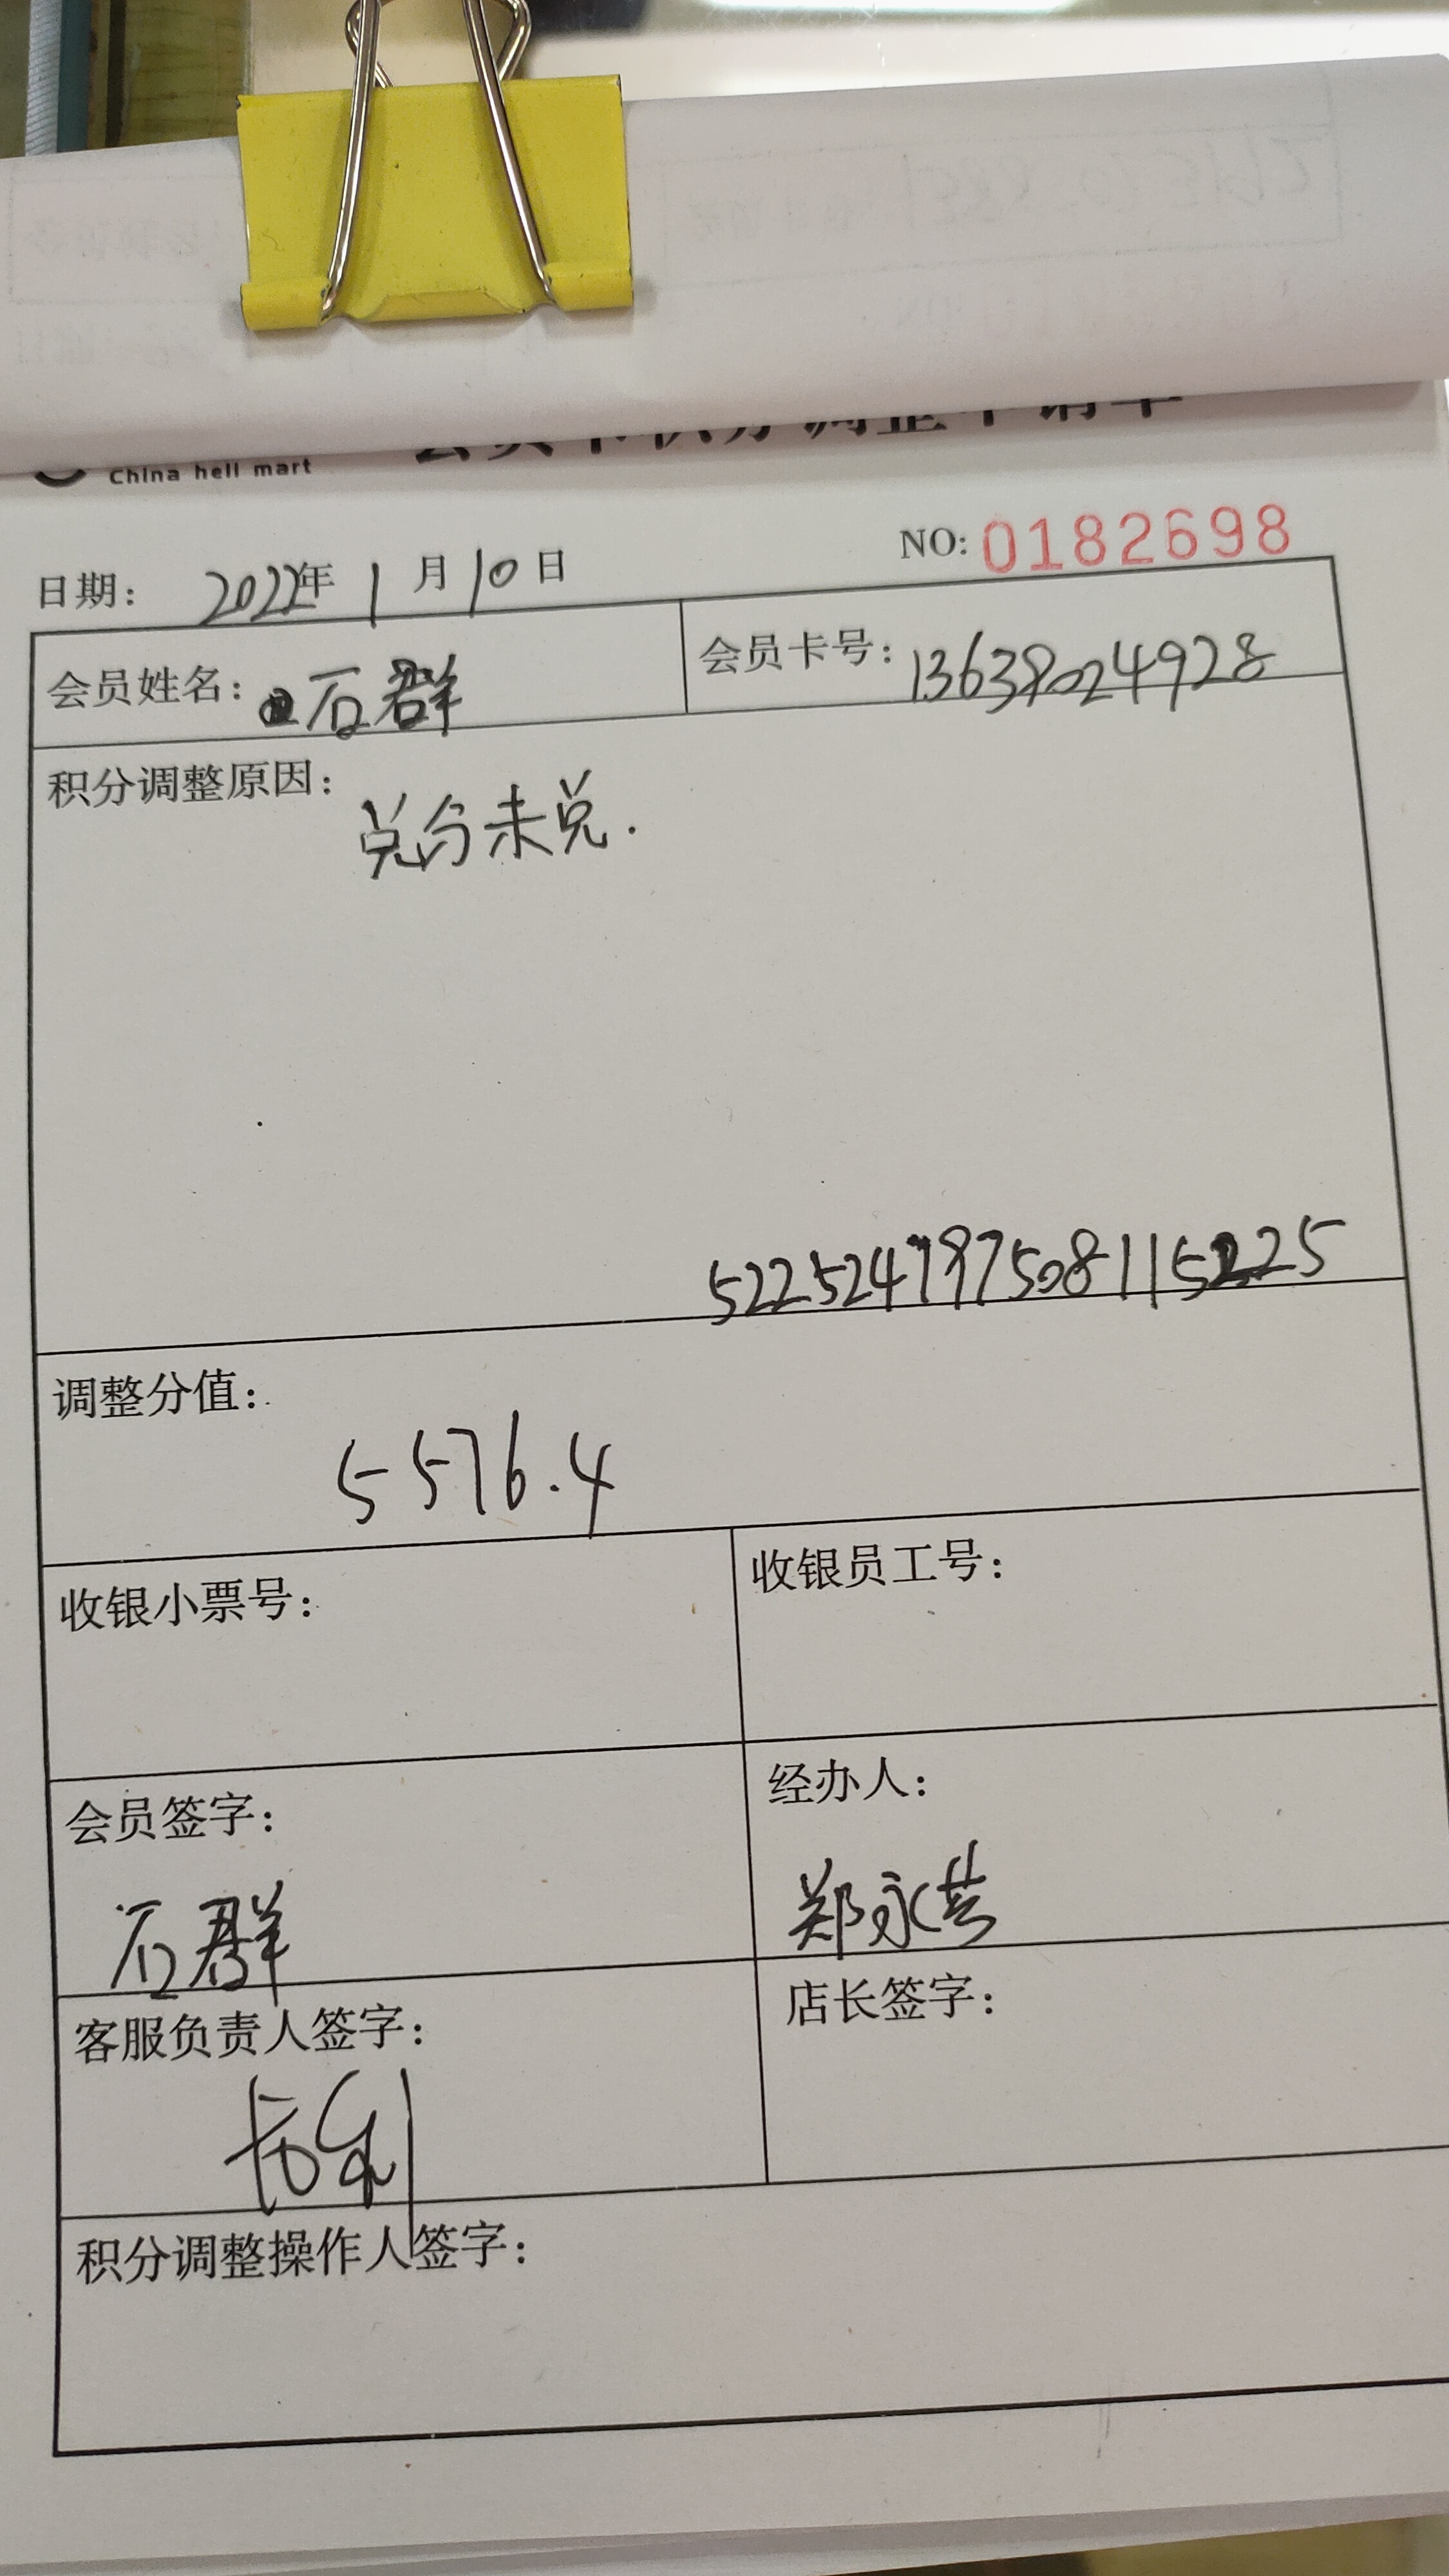 China hell mart
会员卡积分调整申请单
NO: 0182698
日期: 2022年 1 月 10 日
会员姓名: 石群
会员卡号: 13638024928
积分调整原因:
兑分未兑.
522524197508115225
调整分值:
5576.4
收银小票号:
收银员工号:
会员签字:
石群
经办人:
郑永芸
客服负责人签字:
店长签字:
积分调整操作人签字: